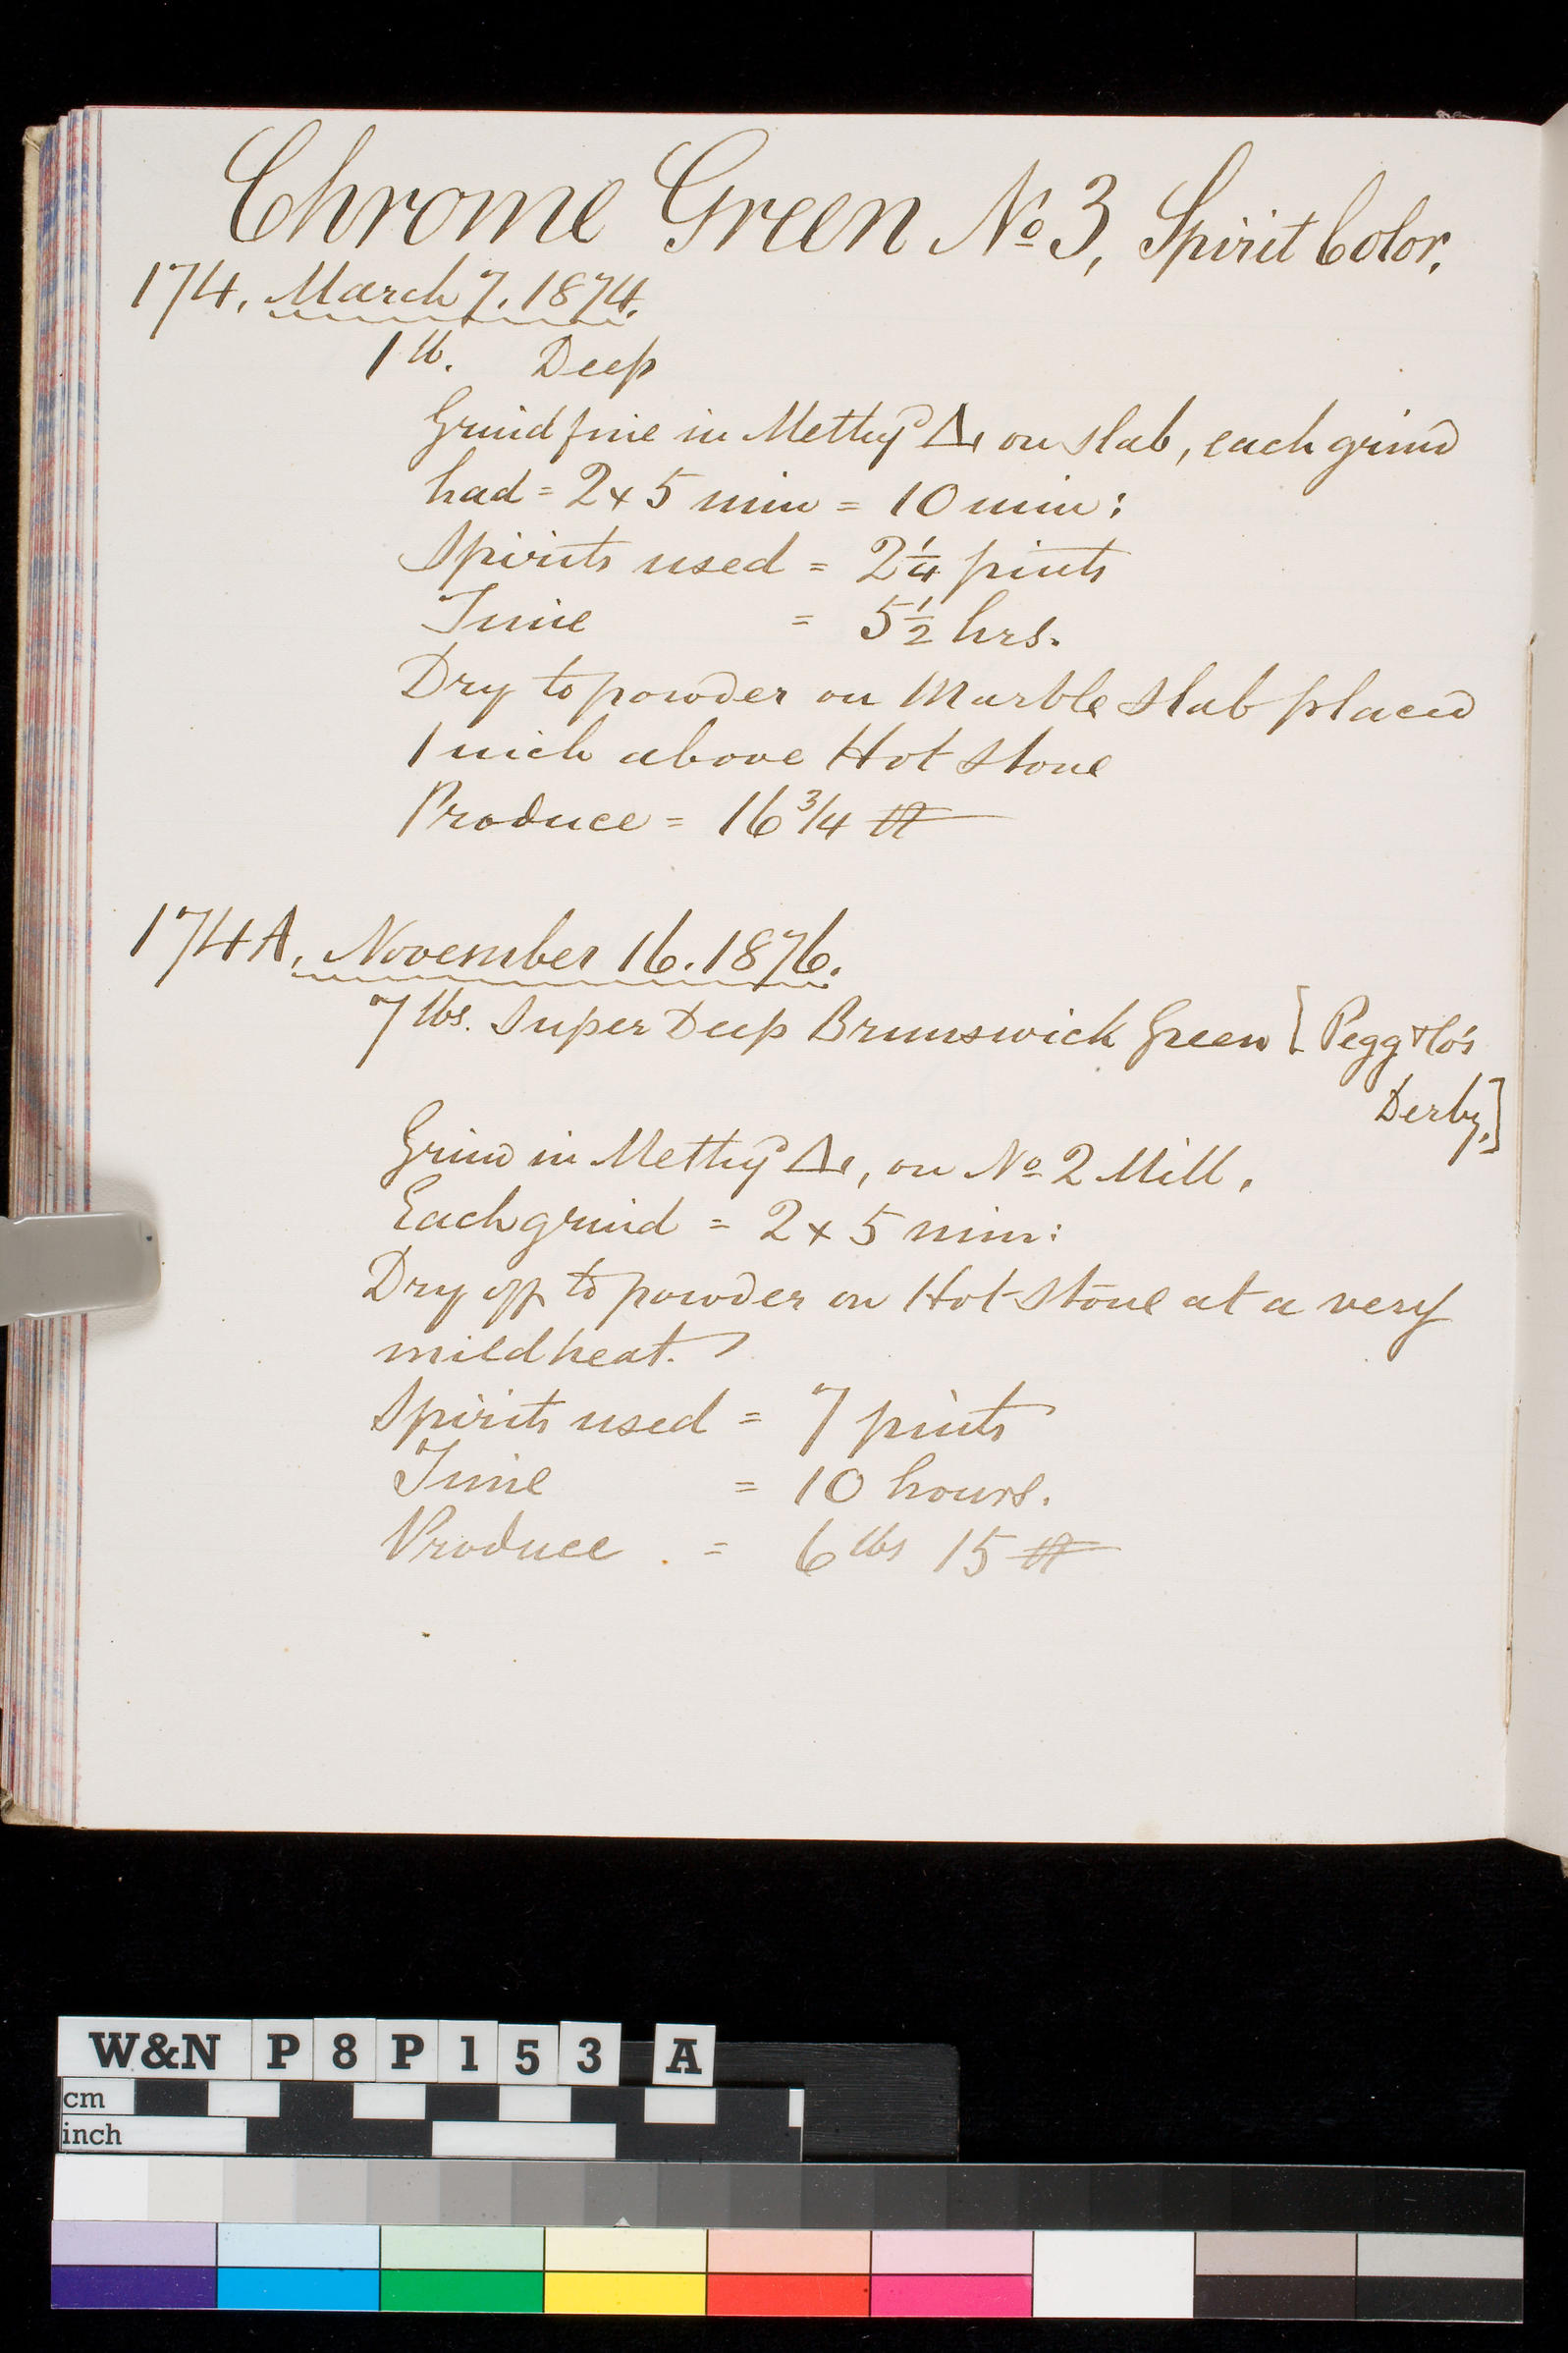 Chrome Green No 3, Spirit Color.
174, March 7. 1874.
1 lb. Deep
Grind fine in Methyd △ on slab, each grind
had = 2 x 5 min = 10 min:
Spirits used = 2 1/4 pints
Time = 5 1/2 hrs.
Dry to powder on Marble slab placed
1 inch above Hot stone
Produce = 16 3/4
174A, November 16. 1876.
7 lbs. Super Deep Brunswick Green [Pegg & Co's
Derby,]
Grind in Methyd △, on No 2 Mill.
Each grind = 2 x 5 min:
Dry off to powder on Hot Stone at a very
mild heat.
Spirits used = 7 pints
Time = 10 hours.
Produce = 6 lbs 15
W&N P8P153 A
cm
inch